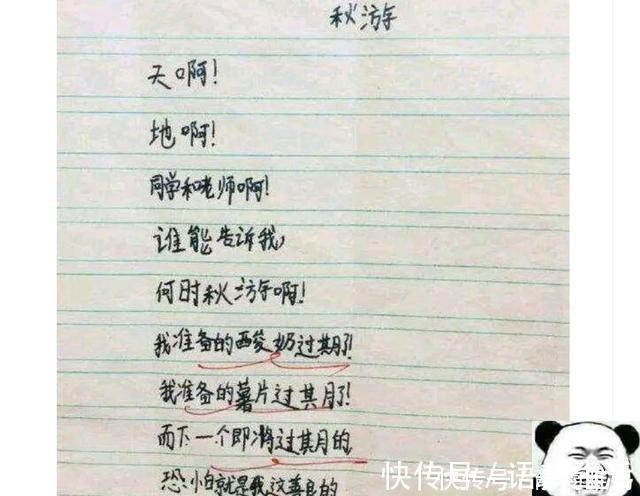 秋游
天啊!
地啊!
同学和老师啊!
谁能告诉我,
何时秋游啊!
我准备的酸奶过期了!
我准备的薯片过期了!
而下一个即将过期的,
恐怕就是我这善良的
快传号